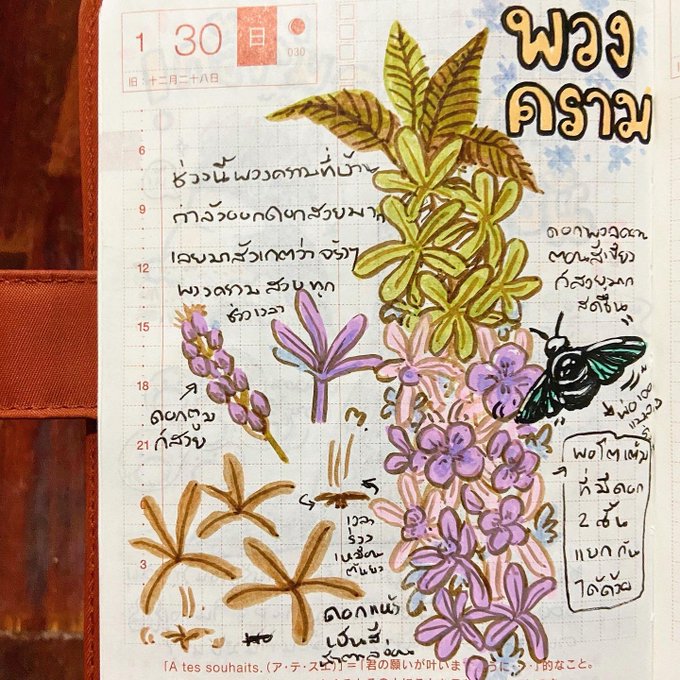 1 30 日 030
旧:十二月二十八日
พวง
คราม
6
9
12
15
18
21
3
ช่วงนี้พวงครามที่บ้าน
กำลังออกดอกสวยมาก
เลยมาสังเกตว่า จริงๆ
พวงคราม สวย ทุก
ช่วงเวลา
ดอกพวงคราม
ตอนสีเขียว
ก็สวยมาก
สดชื่น
ดอกตูม
ก็สวย
พอโตเต็ม
ที่ มีดอก
2 ชั้น
แยก กัน
ได้ด้วย
เวลา
ร่วง
เหมือน
ดอกแห้ง
เป็นสี
น้ำตาลอ่อน
「A tes souhaits. (ア・テ・スエ)」=「君の願いが叶いますように・・」的なこと。